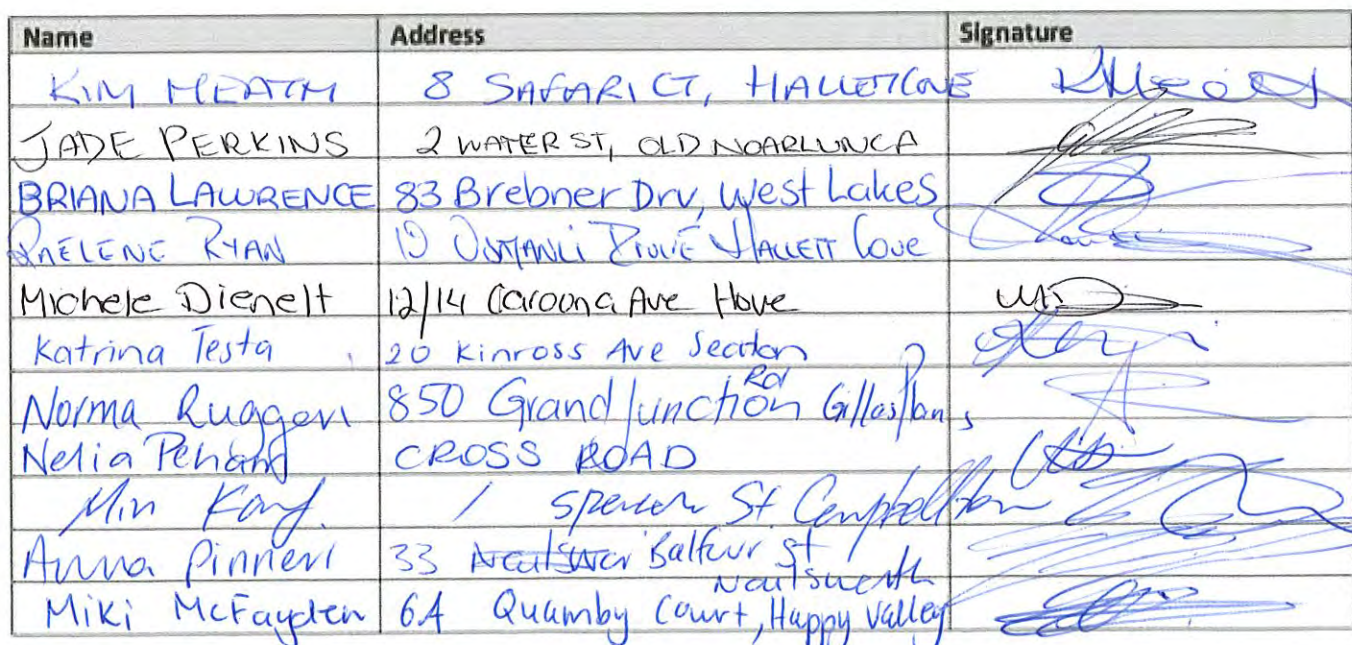 Name Address Signature
KIM HEATH 8 SAFARI CT, HALLETT COVE
JADE PERKINS 2 WATER ST, OLD NOARLUNGA
BRIANA LAWRENCE 83 Brebner Drv, West Lakes
RAELENE RYAN 19 OSMANLI DRIVE HALLETT COVE
Michele Dienelt 12/14 Caroona Ave Hove
Katrina Testa 20 Kinross Ave Seaton
Norma Ruggeri 850 Grand Junction Rd Gilles Plains
Nelia CROSS ROAD
Min 1 Spencer St Campbelltown
Anna Pinneri 33 Balfour St Nailsworth
Miki McFayden 6A Quamby Court, Happy Valley